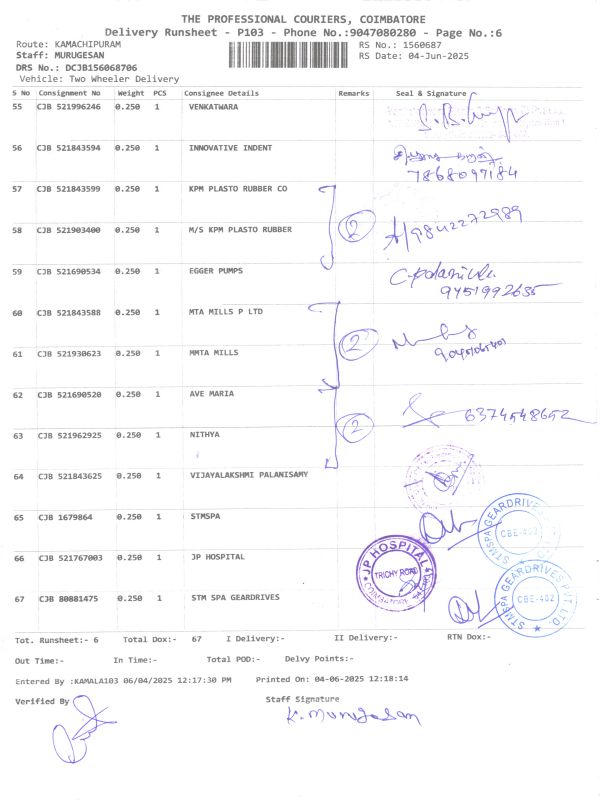 THE PROFESSIONAL COURIERS, COIMBATORE
Delivery Runsheet - P103 - Phone No.:9047080280 - Page No.:6
Route: KAMACHIPURAM RS No.: 1560687
Staff: MURUGESAN RS Date: 04-Jun-2025
DRS No.: DCJB156068706
Vehicle: Two Wheeler Delivery
S No Consignment No Weight PCS Consignee Details Remarks Seal & Signature
55 CJB 521996246 0.250 1 VENKATWARA
56 CJB 521843594 0.250 1 INNOVATIVE INDENT
7868097184
57 CJB 521843599 0.250 1 KPM PLASTO RUBBER CO
58 CJB 521903400 0.250 1 M/S KPM PLASTO RUBBER 2 9842272989
59 CJB 521690534 0.250 1 EGGER PUMPS
9451992635
60 CJB 521843588 0.250 1 MTA MILLS P LTD
61 CJB 521930623 0.250 1 MMTA MILLS 2
62 CJB 521690520 0.250 1 AVE MARIA
6374548652
63 CJB 521962925 0.250 1 NITHYA 2
64 CJB 521843625 0.250 1 VIJAYALAKSHMI PALANISAMY
65 CJB 1679864 0.250 1 STMSPA STMSPA GEARDRIVES CBE-402
66 CJB 521767003 0.250 1 JP HOSPITAL JP HOSPITAL TRICHY ROAD
67 CJB 80881475 0.250 1 STM SPA GEARDRIVES STMSPA GEARDRIVES PVT LTD. CBE-402
Tot. Runsheet:- 6 Total Dox:- 67 I Delivery:- II Delivery:- RTN Dox:-
Out Time:- In Time:- Total POD:- Delvy Points:-
Entered By :KAMALA103 06/04/2025 12:17:30 PM Printed On: 04-06-2025 12:18:14
Verified By Staff Signature
K. Murugesan